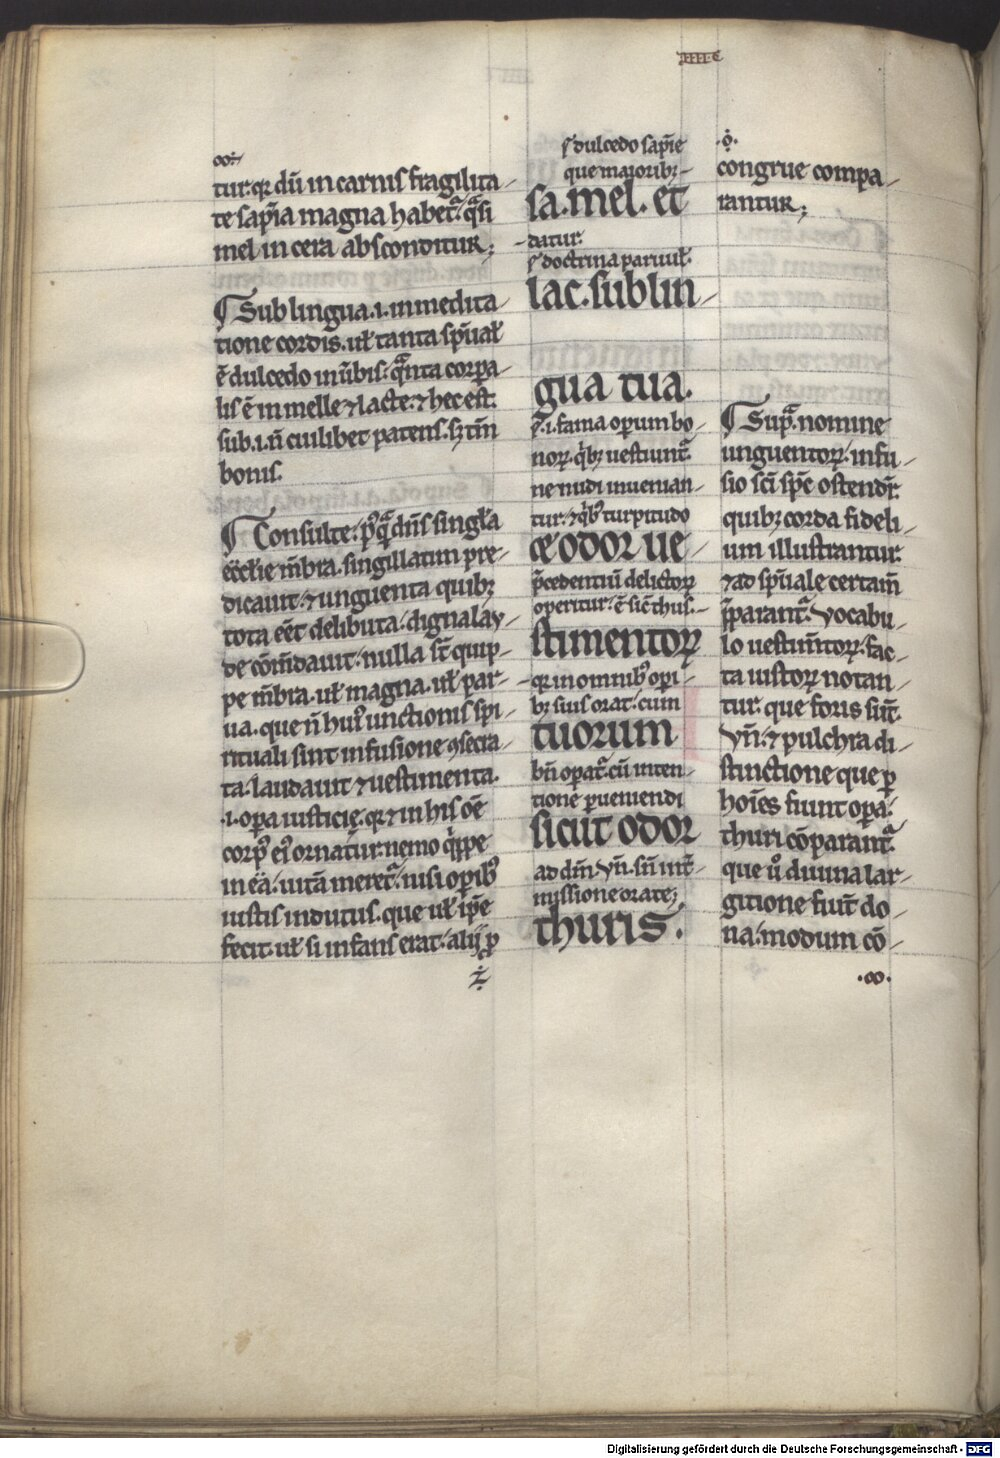 .IIII. C
tur. qr dũ in carnis fragilita-
te sapĩa magna habet̃. q̃si
mel in cera absconditur;
¶ Sub lingua .i. in medita-
tione cordis. uł tanta sp̃uał
ẽ dulcedo in ũbis. q̃nta corpa-
lis ẽ in melle ⁊ lacte. ⁊ hec est
sub .i. ñ cuilibet patens. sꝫ tm̃
bonis.
¶ Consulte. p̾q̃ dñs singl̃a
eccłie m̃bra. singillatim pre-
dicauit. ⁊ unguenta quibꝫ
tota eẽt delibuta. digna lau-
de cõm̃dauit. nulla st̃ quip-
pe m̃bra. uł magna. uł par-
ua. que ñ huı᾽ unctionis spi-
rituali sint infusione ꝯsecra-
ta. laudauit ⁊ uestimenta.
.i. opa iusticię. qr ⁊ in his oẽ
corp᾽ eı᾽ ornatur. nemo q̾ppe
in ea. uitã meret̃. nisi opib᾽
iustis indutus. que uł ip̃e
fecit. uł si infans erat. alij ꝑ
.z.
ſ dulcedo sapĩe
que maioribꝫ
sa. mel. et
datur.
ſ doctrina paruuł.
lac. sub lin-
gua tua.
.i. fama operum bo-
noꝝ. q̾bꝫ uestiunt̃
ne nudi inuenian-
tur. ⁊ q̾b᾽ turpitudo
& odor ue-
p̃cedentiũ delictoꝝ
operitur. ẽ sič thus.
stimentoꝝ
qr in omnib᾽ opi-
bꝫ suis orat. cum
tuorum
bñ opat̃. cũ inten-
tione ꝑueniendi
sicut odor
ad dñm. Vñ. sñ int̃-
missione orate;
thuris.
.o.
congrue compa-
rantur;
¶ Sup̃. nomine
unguentoꝝ. infu-
sio sc̃i sp̃c ostendr̃.
quibꝫ corda fideli-
um illustrantur
⁊ ad sp̃uale certam̃
p̃parant̃. Vocabu-
lo uestim̃toꝝ. fac-
ta iustoꝝ notan-
tur. que foris sũt.
Vñ. ⁊ pulchra di-
stinctione que ꝑ
hoĩes fiunt opa.
thuri cõparant̃.
que ũ diuina lar-
gitione fiũt do-
na. modum cõ-
.∞.
Digitalisierung gefördert durch die Deutsche Forschungsgemeinschaft - DFG